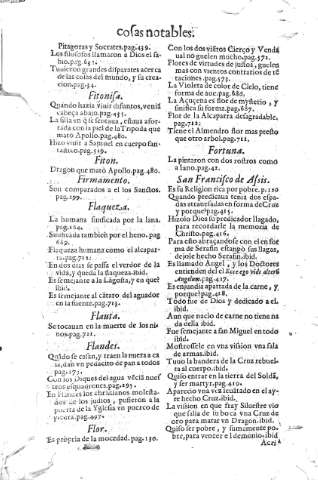 cosas notables.
Pitagoras y Socrates. pag. 439.
Los filosofos llamaron a Dios el sa-
bio. pag. 651.
Tuuieron grandes disparates acerca
de las cosas del mundo, y su crea-
cion. pag. 54.
Fitonisa.
Quando hazia viuir difuntos, venia
cabeça abaxo. pag. 451.
con la piel de la Tripoda que
mato Apollo. pag. 480.
Hizo venir a Samuel en cuerpo fan-
tastico. pag. 519.
Fiton.
Dragon que mató Apollo. pag. 480.
Firmamento.
Son comparados a el los Sanctos.
pag. 199.
Flaqueza.
La humana sinificada por la lana.
pag. 164.
Sinificada tambien por el heno. pag
Flaqueza humana como el alcapar-
ra. pag. 712.
En dos dias se passa el verdor de la
vida, y queda la flaqueza. ibid.
Es semejante a la Lagosta, y en que
ibid.
Es semejante al citarto del aguador
en la fuente. pag. 713.
Flauta.
Se tocauan en la muerte de los ni-
nos. pag. 721.
Flandes.
Quando se casan, y traen la nuera a ca-
sa, dan vn pedacito de pan a todos
pag. 175.
Con los Diques del agua vecia nues-
tros esquadrones. pag. 495.
En Flandes los christianos molesta-
dos de los judios, pusieron a la
puerta de la Yglesia vn puerco de
piedra. pag. 497.
Flor.
Es propria de la mocedad. pag. 130.
Con los dos vientos Cierço y Venda
ual no huelen mucho. pag. 571.
Flores de virtudes de justos, huelen
mas con vientos contrarios de te
taciones. pag. 573.
La Violeta de color de Cielo, tiene
forma de hoz. pag. 686.
La Açuçena es flor de mysterio, y
sinifica su forma. pag. 687.
Flor de la Alcaparra desagradable.
pag. 712.
Tiene el Almendro flor mas presto
que otro arbol. pag. 711.
Fortuna.
La pintaron con dos rostros como
a Iano. pag. 42.
San Francisco de Asis.
Es su Religion rica por pobre. p. 110
Quando predicaua tenia dos espa-
das atrauesadas en forma de Cruz
y porque? pag. 415.
Hizolo Dios su predicador llagado,
para recordarle la memoria de
Christo. pag. 416.
Para esto abraçandose con el en for
ma de Serafin estampó sus llagas,
de jole hecho Serafin. ibid.
Es llamado Angel, y los Doctores
entienden del el Et ego vidi alterū
Angelum. pag. 417.
Es enjundia apartada de la carne, y
porque? pag. 418.
Todo fue de Dios y dedicado a el.
ibid.
Aun que nacio de carne no tiene na
da della ibid.
Fue semejante a san Miguel en todo
ibid.
Mostrosele en vna vision vna sala
de armas. ibid.
Tuuo la bandera de la Cruz rebuel-
ta al cuerpo. ibid.
Quiso entrar en la tierra del Soldā,
y ser martyr. pag. 419.
Aparecio vna vez leuātado en el ay-
re hecho Cruz. ibid.
La vision en que fray Siluestre vio
que salia de su boca vna Cruz de
oro para matar vn Dragon. ibid.
Quiso ser pobre, y sumamente po-
bre, para vencer el demonio. ibid